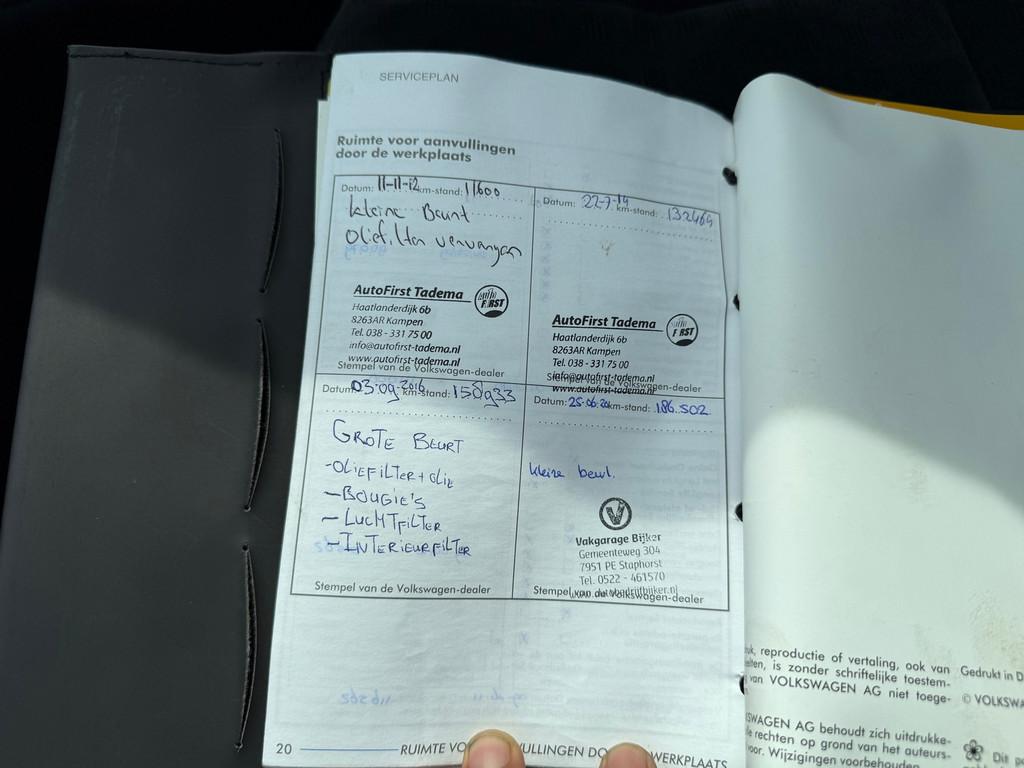 SERVICEPLAN
Ruimte voor aanvullingen
door de werkplaats
Datum: 11-11-12 km-stand: 11600
kleine Beurt
oliefilter vervangen
AutoFirst Tadema
Haatlanderdijk 6b
8263AR Kampen
Tel. 038 - 331 75 00
info@autofirst-tadema.nl
www.autofirst-tadema.nl
Stempel van de Volkswagen-dealer
Datum: 22-7-14 km-stand: 132464
AutoFirst Tadema
Haatlanderdijk 6b
8263AR Kampen
Tel. 038 - 331 75 00
info@autofirst-tadema.nl
Stempel van de Volkswagen-dealer
www.autofirst-tadema.nl
Datum 03-09-2016 km-stand: 150933
GROTE BEURT
-OLIEFILTER + OLIE
- BOUGIE'S
- LUCHTFILTER
- INTERIEURFILTER
Stempel van de Volkswagen-dealer
Datum: 25.06.20 km-stand: 186.502
kleine beurt.
Vakgarage Bijker
Gemeenteweg 304
7951 PE Staphorst
Tel. 0522 - 461570
www.autobedrijfbijker.nl
Stempel van de Volkswagen-dealer
20 RUIMTE VOOR AANVULLINGEN DOOR WERKPLAATS
reproductie of vertaling, ook van
is zonder schriftelijke toestem-
van VOLKSWAGEN AG niet toege-
VOLKSWAGEN AG behoudt zich uitdrukke-
rechten op grond van het auteurs-
voor. Wijzigingen voorbehouden
Gedrukt in D
© VOLKSWA
Dit